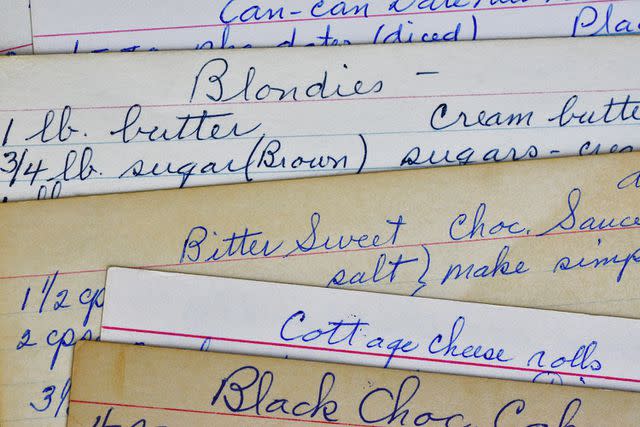 Can-Can Date
dates (diced) Pla
Blondies -
1 lb. butter cream butte
3/4 lb. sugar (Brown) sugars - crea
Bitter Sweet Choc. Sauce
salt } make simp
1 1/2 cps
2 cps
Cottage cheese rolls
3/
Black Choc Cak